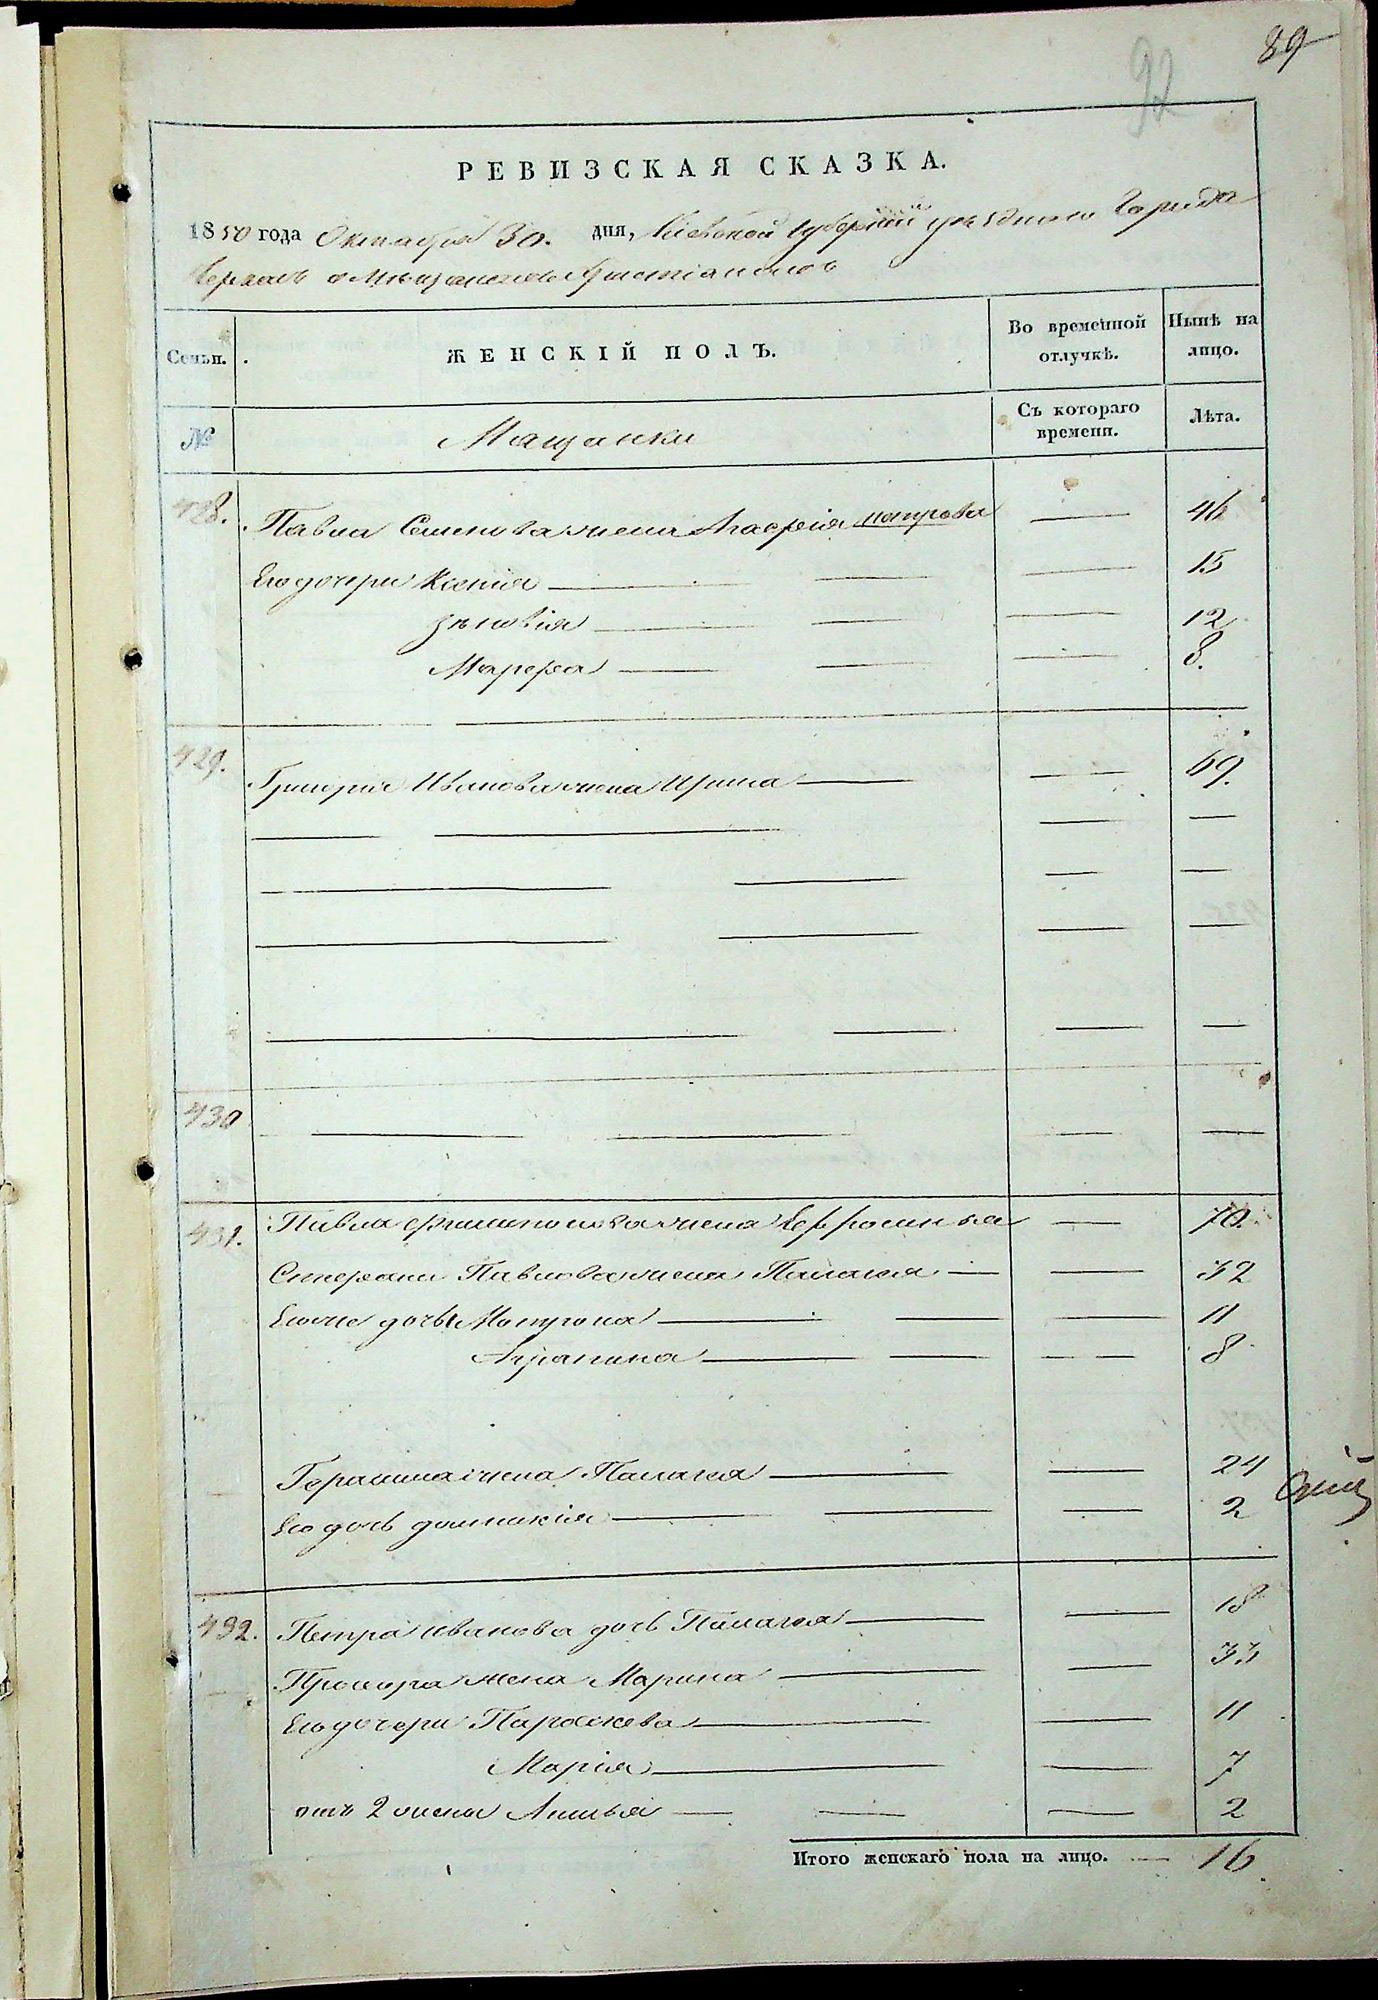 89
92
РЕВИЗСКАЯ СКАЗКА.
1850 года Октября 30. дня, Киевской Губерніи уѣзднаго Города
Черкасъ о Мѣщанахъ Христіанахъ
Семьи. ЖЕНСКІЙ ПОЛЪ. Во временной отлучкѣ. Нынѣ на лицо.
№ Мѣщанки Съ котораго времени. Лѣта.
428. Павла Семенова жена Агафія 46
Его дочери Ксенія 15
Зѣновія 12
Марфа 8.
429. Григорія Иванова жена Ирина 69.
430
431. Павла жена Ефросинья 70.
Стефана Павлова жена Палагея 32
Его же дочь Мотрона 11
Агрипина 8
Герасима жена Палагея 24
Его дочь Домникія 2
432. Петра Иванова дочь Палагея 18
Прохора жена Марина 33
Его дочери Параскева 11
Марія 7
отъ 2 жены 2
Итого женскаго пола на лицо. — 16